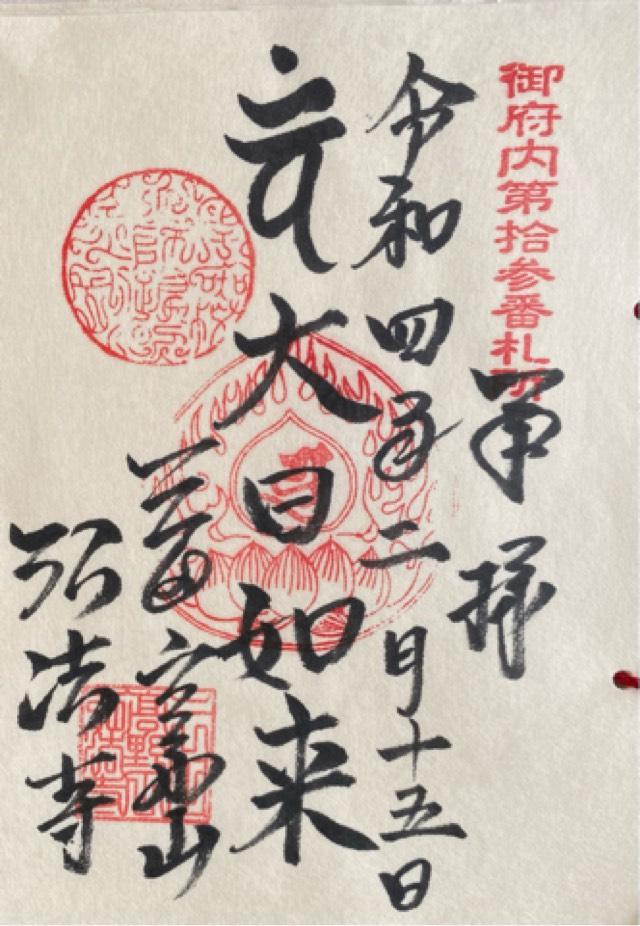 御府内第拾参番札所
奉拝
令和四年二月十五日
大日如来
三田高野山
弘法寺